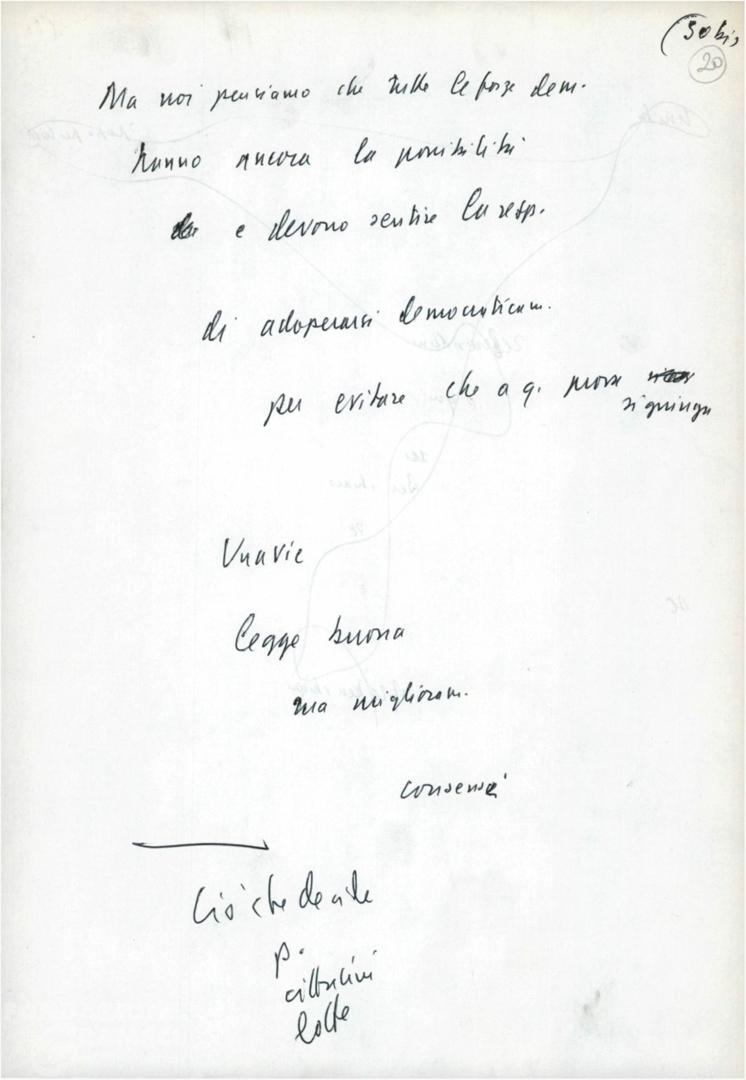 (30 bis
20
Ma noi pensiamo che tutte le forze dem.
hanno ancora la possibilità
e devono sentire la resp.
di adoperarsi democraticam.
per evitare che a q. prova
si giunga
Una via
legge buona
ma miglioram.
consensi
Ciò che decide
p.
cittadini
lotte